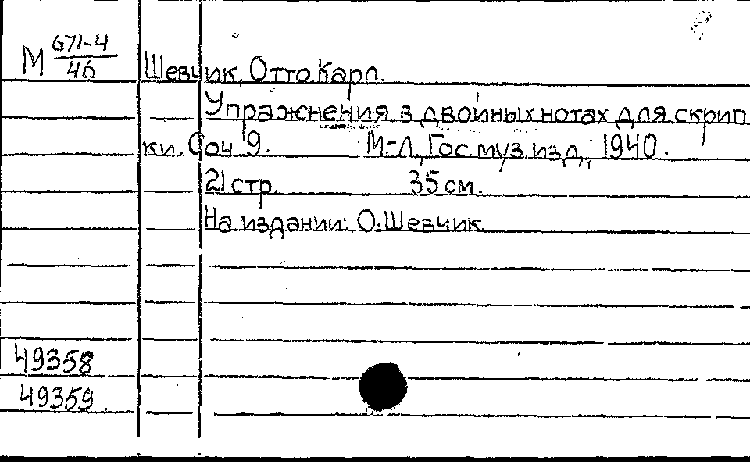 М 671-4
46
Шевчик, Отто Карл.
Упражнения в двойных нотах для скрип
ки. Соч. 9. М-Л, Гос. муз. изд., 1940.
21 стр. 35 см.
На издании: О. Шевчик.
49358
49359